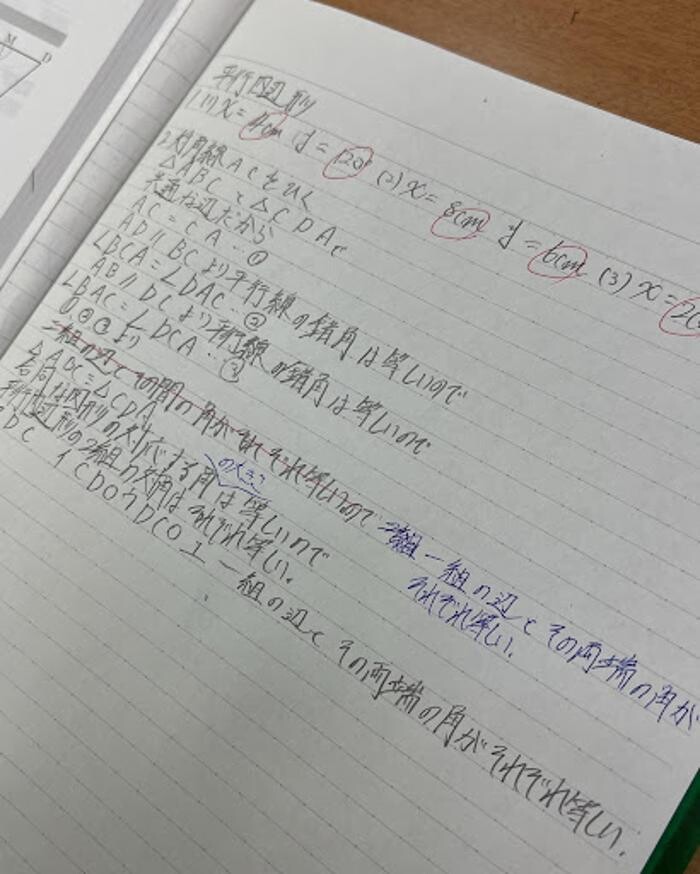 M D
平行四辺形
1.(1) x = 4cm y = 120° (2) x = 8cm y = 6cm (3) x =
2.対角線ACをひく
△ABCと△CDAで
共通な辺だから
AC = CA … ①
AD // BCより平行線の錯角は等しいので
∠BCA = ∠DAC … ②
AB // DCより平行線の錯角は等しいので
∠BAC = ∠DCA … ③
①,②,③より
二組の辺とその間の角がそれぞれ等しいので 一組の辺とその両端の角が
それぞれ等しい。
△ADC ≡ △CDA
合同な図形の対応する角は等しいので
平行四辺形の2組の対角はそれぞれ等しい。
DC イ CDO ウ DCO エ 一組の辺とその両端の角がそれぞれ等しい。